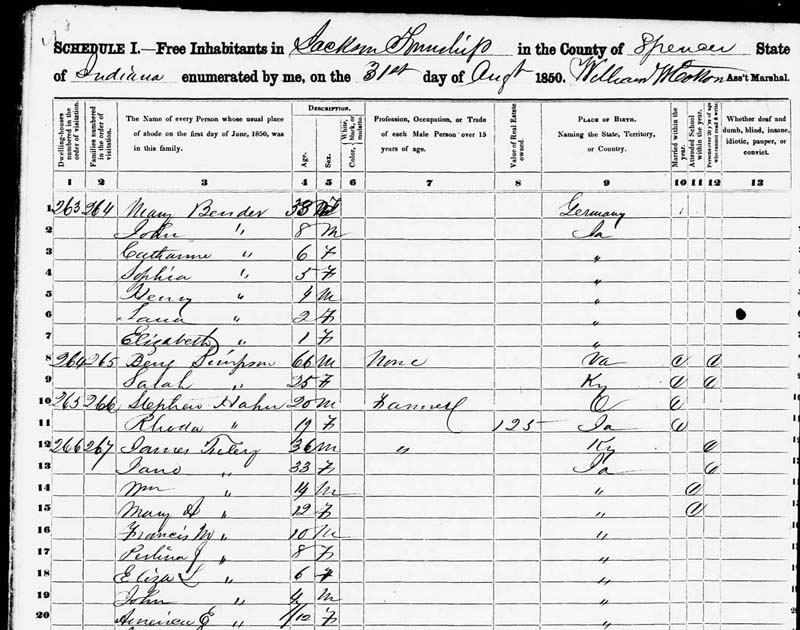 SCHEDULE I.—Free Inhabitants in Jackson Township in the County of Spencer State
of Indiana enumerated by me, on the 31st day of Augt 1850. William W Cotton Ass't Marshal.
Dwelling-houses numbered in the order of visitation.
Families numbered in the order of visitation.
The Name of every Person whose usual place of abode on the first day of June, 1850, was in this family.
DESCRIPTION.
Age.
Sex.
Color, White, black, or mulatto.
Profession, Occupation, or Trade of each Male Person over 15 years of age.
Value of Real Estate owned.
PLACE OF BIRTH. Naming the State, Territory, or Country.
Married within the year.
Attended School within the year.
Persons over 20 y'rs of age who cannot read & write.
Whether deaf and dumb, blind, insane, idiotic, pauper, or convict.
1 2 3 4 5 6 7 8 9 10 11 12 13
1 263 264 Mary Bender 38 F Germany
2 John " 8 M Ia
3 Catharine " 6 F "
4 Sophia " 5 F "
5 Henry " 4 M "
6 " 2 F "
7 Elizabeth 1 F "
8 264 265 Benj Simpson 66 M None Va
9 Sarah " 25 F Ky
10 265 266 Stephen Hahn 20 M Farmer O
11 Rhoda " 19 F 125 Ia
12 266 267 James 36 M " Ky
13 Jane " 33 F Ia
14 Wm " 14 M "
15 Mary A " 12 F "
16 Francis M " 10 M "
17 Perlina J " 8 F "
18 Eliza L " 6 F "
19 John " 4 M "
20 American E " 1/12 F "